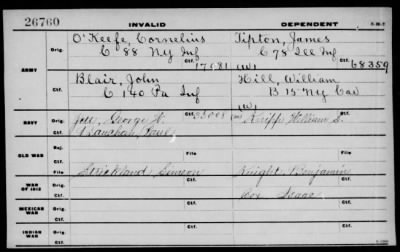 26760
INVALID
DEPENDENT
ARMY
Orig.
O'Keefe, Cornelius
Tipton, James
C 88 Ny Inf
C 78 Ill Inf
Ctf.
17581
(W)
Ctf.
68359
Orig.
Blair, John
Hill, William
C 140 Pa Inf
B 15 Ny Cav
Ctf.
(W)
NAVY
Orig.
George H.
Ctf.
William S.
Orig.
Ctf.
OLD WAR
File.
Ctf.
WAR OF 1812
Orig.
Strickland Simeon
Ctf.
Knight, Benjamin
Ctf.
Cox Isaac
MEXICAN WAR
Orig.
Ctf.
INDIAN WAR
Orig.
Ctf.